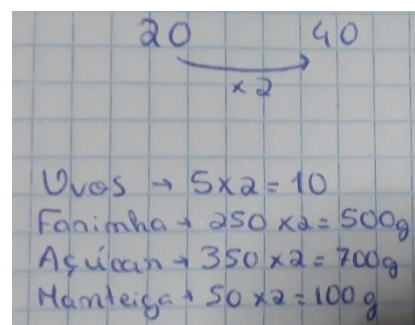 20 40
x 2
Ovos → 5 x 2 = 10
Farinha → 250 x 2 = 500g
Açúcar → 350 x 2 = 700g
Manteiga → 50 x 2 = 100g